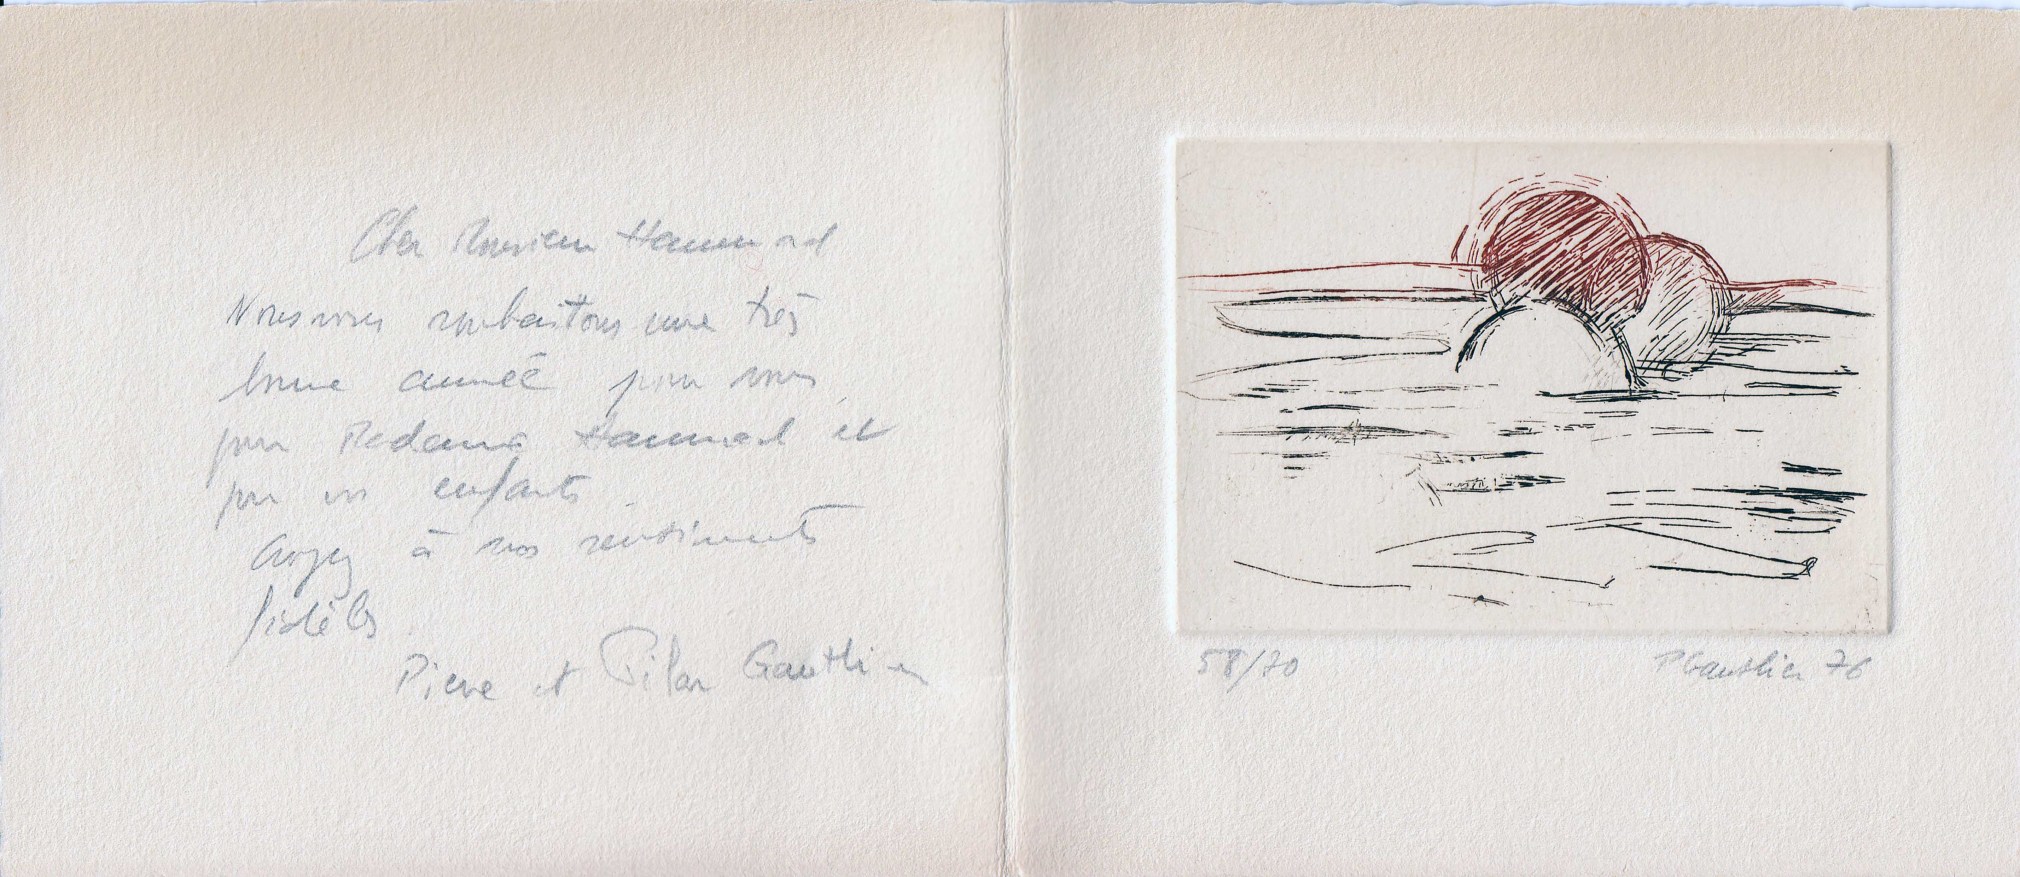 Cher Monsieur Hammad
Nous vous souhaitons une très
bonne année pour vous,
pour Madame Hammad et
pour vos enfants.
Croyez à nos sentiments
fidèles.
Pierre et Pilar Gauthier
58/70
PGauthier 76